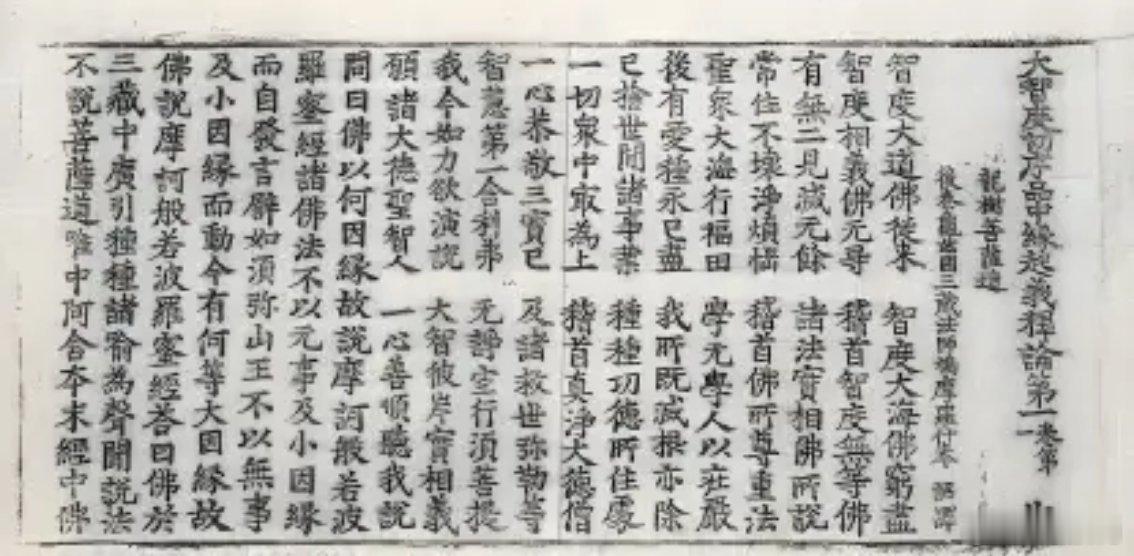 大智度初序品中緣起義釋論第一 卷第一
龍樹菩薩造
後秦龜茲國三藏法師鳩摩羅什奉 詔譯
智度大道佛從來 智度大海佛窮盡
智度相義佛无㝵 稽首智度無等佛
有無二見滅无餘 諸法實相佛所說
常住不壞淨煩惱 稽首佛所尊重法
聖衆大海行福田 學无學人以莊嚴
後有愛種永已盡 我所既滅根亦除
已捨世間諸事業 種種功德所住處
一切衆中㝡為上 稽首真淨大德僧
一心恭敬三寶已 及諸救世弥勒等
智慧第一舍利弗 无諍空行須菩提
我今如力欲演說 大智彼岸實相義
願諸大德聖智人 一心善順聽我說
問曰佛以何因緣故說摩訶般若波
羅蜜經諸佛法不以无事及小因緣
而自發言譬如須弥山王不以無事
及小因緣而動今有何等大因緣故
佛說摩訶般若波羅蜜經荅曰佛於
三藏中廣引種種諸喻為聲聞說法
不說菩薩道唯中阿含本末經中佛